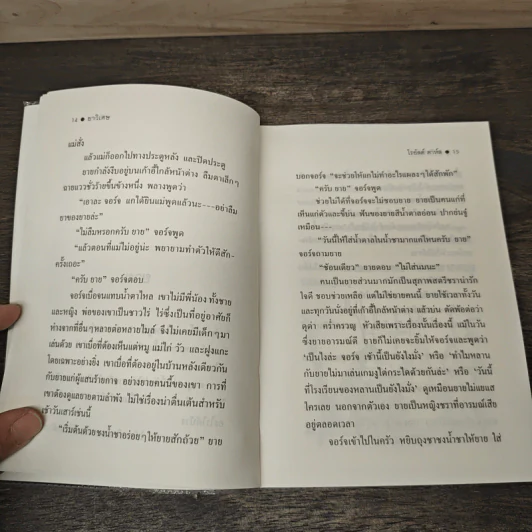 14 ● ยาวิเศษ
แม่สั่ง
แล้วแม่ก็ออกไปทางประตูหลัง และปิดประตู
ยายกำลังงีบอยู่บนเก้าอี้ใกล้หน้าต่าง ลืมตาเล็กๆ
ฉายแววชั่วร้ายขึ้นข้างหนึ่ง พลางพูดว่า
“เอาละ จอร์จ แกได้ยินแม่พูดแล้วนะ---อย่าลืม
ยาของยายล่ะ”
“ไม่ลืมหรอกครับ ยาย” จอร์จพูด
“แล้วตอนที่แม่ไม่อยู่น่ะ พยายามทำตัวให้ดีสัก-
ครั้งเถอะ”
“ครับ ยาย” จอร์จตอบ
จอร์จเบื่อจนแทบน้ำตาไหล เขาไม่มีพี่น้อง ทั้งชาย
และหญิง พ่อของเขาเป็นชาวไร่ ไร่ซึ่งเป็นที่อยู่อาศัยก็
ห่างจากที่อื่นๆหลายต่อหลายไมล์ จึงไม่เคยมีเด็กๆมา
เล่นด้วย เขาเบื่อที่ต้องเห็นแต่หมู แม่ไก่ วัว และฝูงแกะ
โดยเฉพาะอย่างยิ่ง เขาเบื่อที่ต้องอยู่ในบ้านหลังเดียวกัน
กับยายแก่ผู้แสนร้ายกาจ อย่างยายคนนี้ของเขา การที่
เขาต้องดูแลยายตามลำพัง ไม่ใช่เรื่องน่าตื่นเต้นสำหรับ
เช้าวันเสาร์เช่นนี้
“เริ่มต้นด้วยชงน้ำชาอร่อยๆให้ยายสักถ้วย” ยาย
โรอัลด์ ดาห์ล ● 15
บอกจอร์จ “จะช่วยให้แกไม่ทำอะไรแผลงๆได้สักพัก”
“ครับ ยาย” จอร์จพูด
ช่วยไม่ได้ที่จอร์จจะไม่ชอบยาย ยายเป็นคนแก่ที่
เห็นแก่ตัวและขี้บ่น ฟันของยายสีน้ำตาลอ่อน ปากย่นจู๋
เหมือน---
“วันนี้ให้ใส่น้ำตาลในน้ำชามากแค่ไหนครับ ยาย”
จอร์จถามยาย
“ช้อนเดียว” ยายตอบ “ไม่ใส่นมนะ”
คนเป็นยายส่วนมากมักเป็นสุภาพสตรีชราน่ารัก
ใจดี ชอบช่วยเหลือ แต่ไม่ใช่ยายคนนี้ ยายใช้เวลาทั้งวัน
และทุกวันนั่งอยู่ที่เก้าอี้ใกล้หน้าต่าง แล้วบ่น ตัดพ้อต่อว่า
ดุด่า คร่ำครวญ หัวเสียเพราะเรื่องนั้นเรื่องนี้ แม้ในวัน
ซึ่งยายอารมณ์ดี ยายก็ไม่เคยจะยิ้มให้จอร์จและพูดว่า
“เป็นไงล่ะ จอร์จ เช้านี้เป็นยังไงมั่ง” หรือ “ทำไมหลาน
กับยายไม่มาเล่นเกมงูไต่กระไดด้วยกันล่ะ” หรือ “วันนี้
ที่โรงเรียนของหลานเป็นยังไงมั่ง” ดูเหมือนยายไม่แยแส
ใครเลย นอกจากตัวเอง ยายเป็นหญิงชราที่อารมณ์เสีย
อยู่ตลอดเวลา
จอร์จเข้าไปในครัว หยิบถุงชาชงน้ำชาให้ยาย ใส่